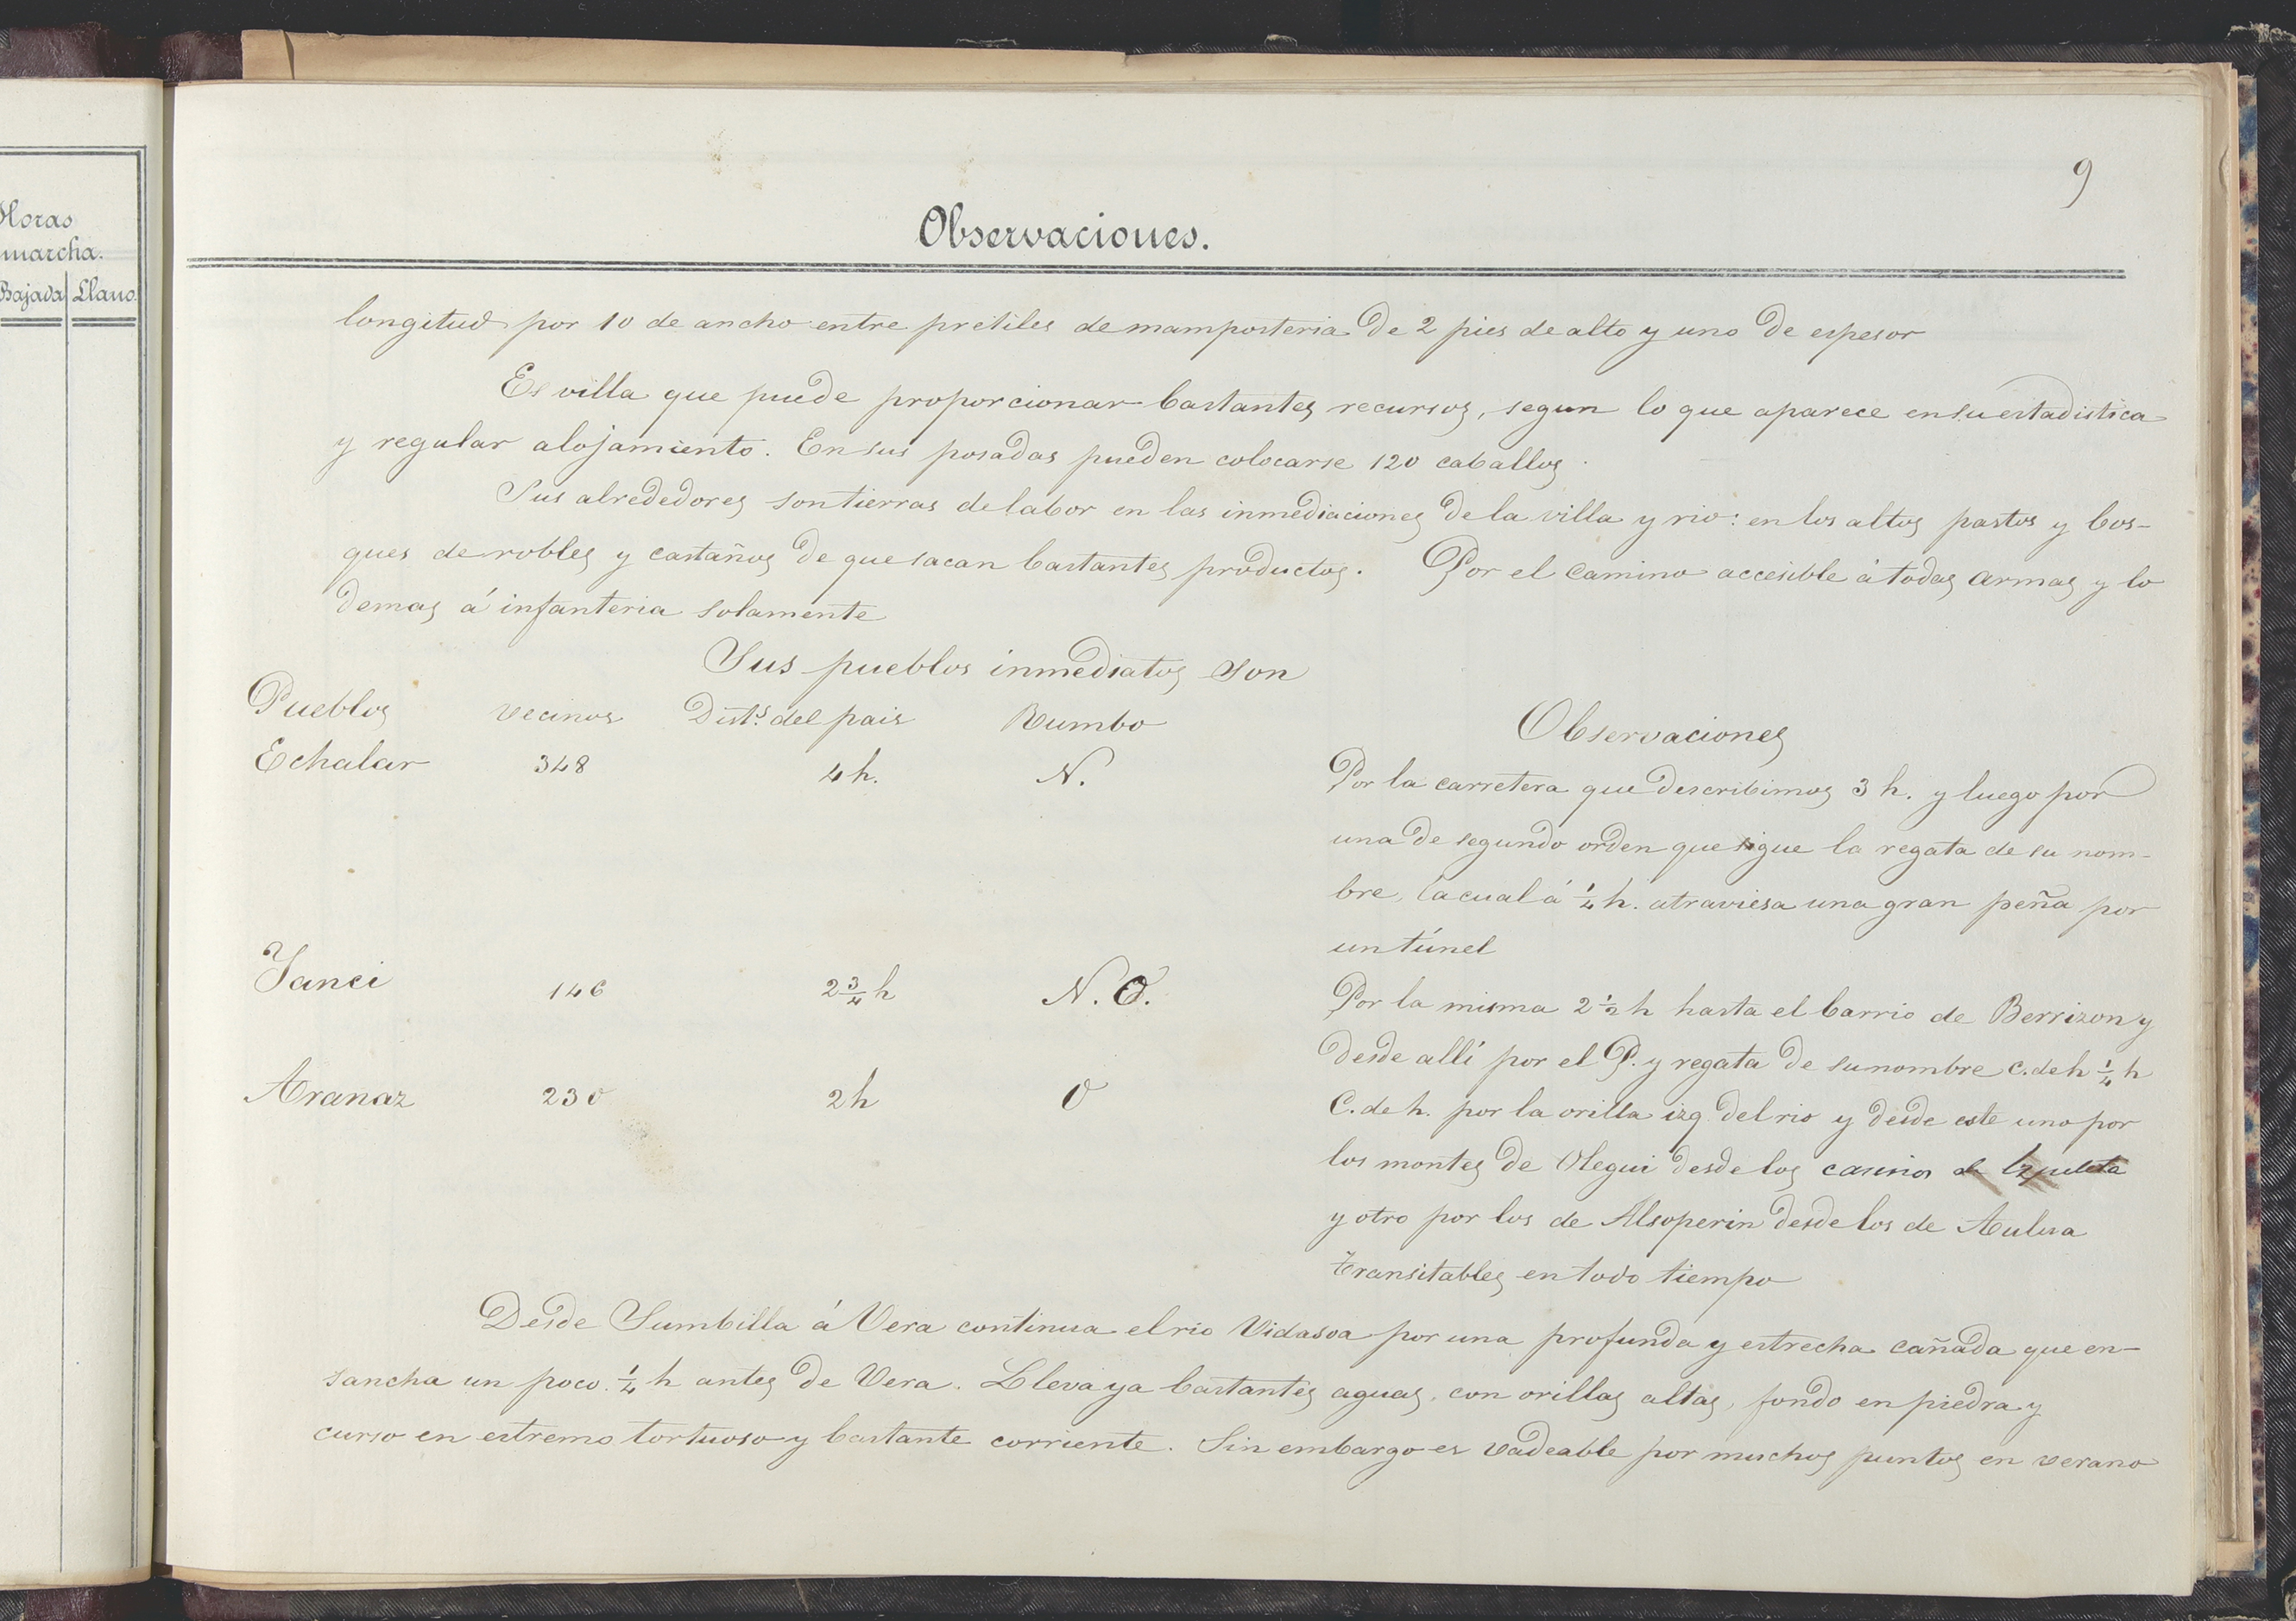 Horas
marcha.
Bajada Llano.
9
Observaciones.
longitud por 10 de ancho entre pretiles de mamposteria de 2 pies de alto y uno de espesor
Es villa que puede proporcionar bastantes recursos, segun lo que aparece en su estadistica
y regular alojamiento. En sus posadas pueden colocarse 120 caballos.
Sus alrededores son tierras de labor en las inmediaciones de la villa y rio: en los altos pastos y bos-
ques de robles y castaños de que sacan bastantes productos. Por el camino accesible á todas armas y lo
demas á infanteria solamente
Sus pueblos inmediatos son
Pueblos vecinos Dist.s del pais Rumbo Observaciones
Echalar 348 4 h. N. Por la carretera que describimos 3 h. y luego por
una de segundo orden que sigue la regata de su nom-
bre, la cual á 1/4 h. atraviesa una gran peña por
un túnel
Yanci 146 2 3/4 h N. O. Por la misma 2 1/2 h hasta el barrio de Berrizon y
desde allí por el P. y regata de su nombre C. de h 1/4 h
Aranaz 230 2 h O C. de h. por la orilla izq. del rio y desde este uno por
los montes de Olegui desde los
y otro por los de Alsoperin desde los de
transitables en todo tiempo
Desde Sumbilla á Vera continua el rio Vidasoa por una profunda y estrecha cañada que en-
sancha un poco 1/4 h antes de Vera. Lleva ya bastantes aguas, con orillas altas, fondo en piedra y
curso en estremo tortuoso y bastante corriente. Sin embargo es vadeable por muchos puntos en verano